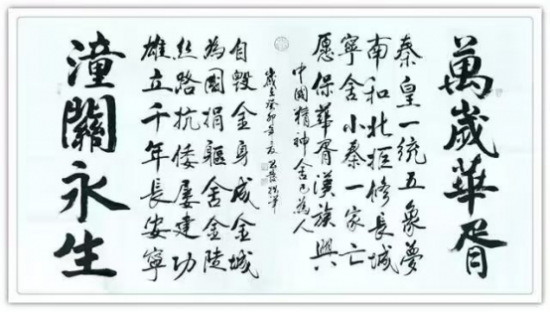 萬歲華胥
秦皇一統五象夢
南和北拒修長城
寧舍小秦一家亡
願保華胥漢族興
中國精神舍己為人
歲在癸卯年夏
自毀金身成金城
為國捐軀舍金陵
絲路抗倭屡建功
雄立千年長安寧
潼關永生